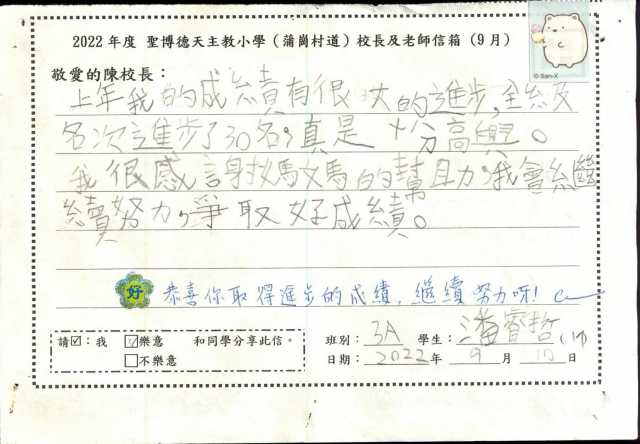 2022 年度 聖博德天主教小學（蒲崗村道）校長及老師信箱（9 月）
© San-X
敬愛的陳校長：
上年我的成績有很大的進步，全級
名次進步了30名，真是十分高興。
我很感謝媽媽的幫助，我會繼
續努力，爭取好成績。
好 恭喜你取得進步的成績，繼續努力呀！
請☑：我 ☑樂意 和同學分享此信。
□不樂意
班別：3A 學生：潘睿哲
日期：2022年 9 月 10 日